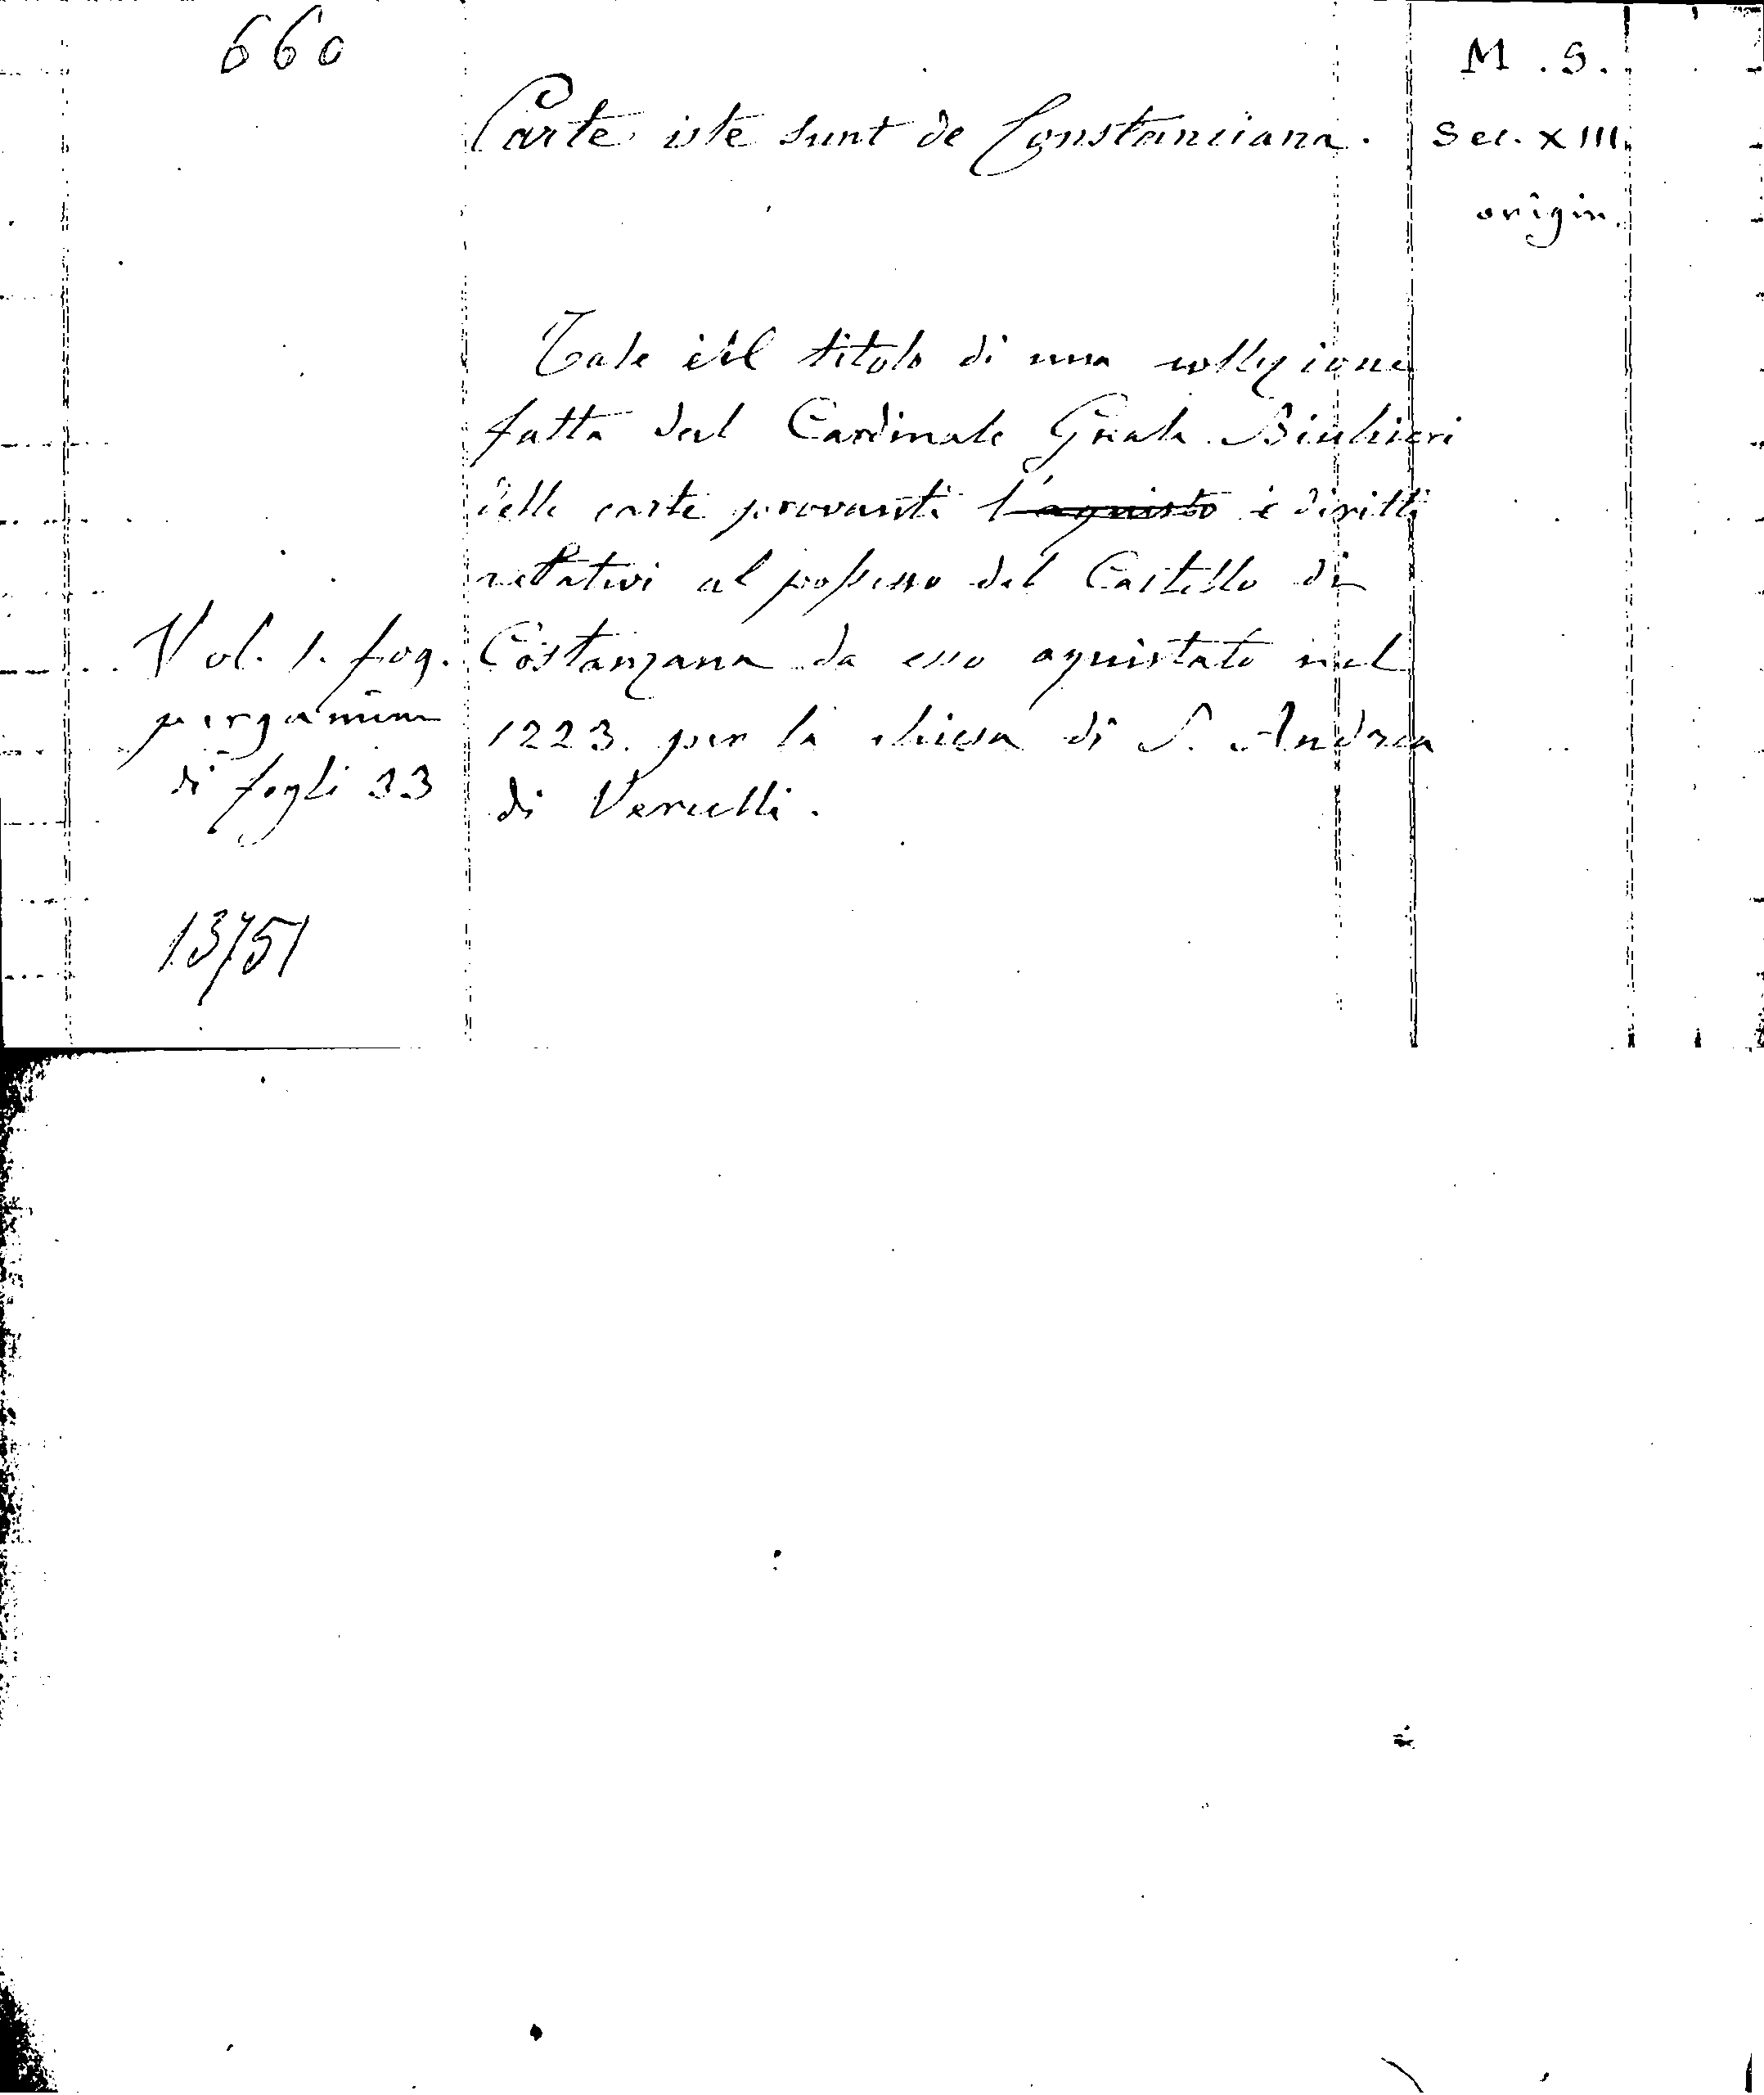 660
Carte iste sunt de Constanciana.
M.S.
Sec. XIII.
origin.
Tale è il titolo di una collezione
fatta dal Cardinale Guala Bichieri
delle carte provanti l'aquisto i diritti
relativi al possesso del Castello di
Costanzana da esso aquistato nel
1223. per la chiesa di S. Andrea
di Vercelli.
Vol. 1. fog.
pergamen
di fogli 33
13751